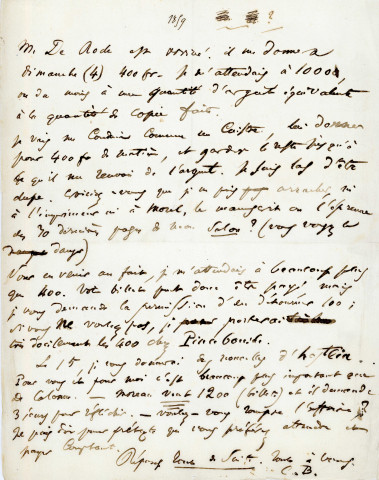 1859
M. De Rode est arrivé. il me donne
dimanche (4) 400 fr. Je m'attendais à 1000,
ou du moins à une quantité d'argent équivalent
à la quantité de copie faite.
Je vais me conduire comme un cuistre, lui donner
pour 400 fr de matière, et garder le reste jusqu'à
ce qu'il me renvoie de l'argent. Je suis las d'être
dupe. Croiriez-vous que je n'ai pu arracher ni
à l'imprimeur ni à Morel, le manuscrit ou l'épreuve
des 30 dernières pages de mon Salon? (vous voyez le
danger)
Vous en venir au fait, je m'attendais à beaucoup plus
que 400. Votre billet peut donc être payé mais
je vous demande la permission d'en détourner 100;
si vous ne voulez pas, je porterai
très docilement les 400 chez Pincebourde.
Le 15, je vous donnerai des nouvelles d'hostein.
Pour vous et pour moi c'est beaucoup plus important que
de Calonne. — moreau veut 1200 (billets) et il demande
3 jours pour réfléchir. — voulez-vous rompre l'affaire?
Je puis dire pour prétexte que vous préférez attendre et
payer comptant.
Réponse tout de suite. Tout à vous.
C. B.